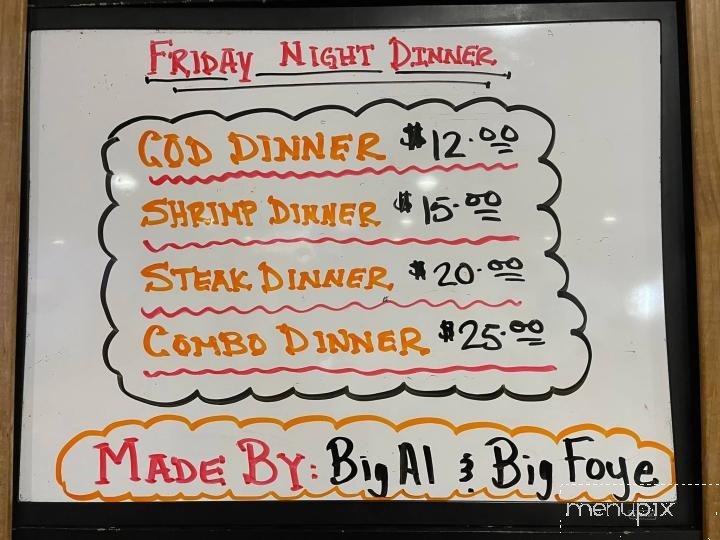 FRIDAY NIGHT DINNER
COD DINNER $12.00
SHRIMP DINNER $15.00
STEAK DINNER $20.00
COMBO DINNER $25.00
MADE BY: Big Al & Big Foye
menupix